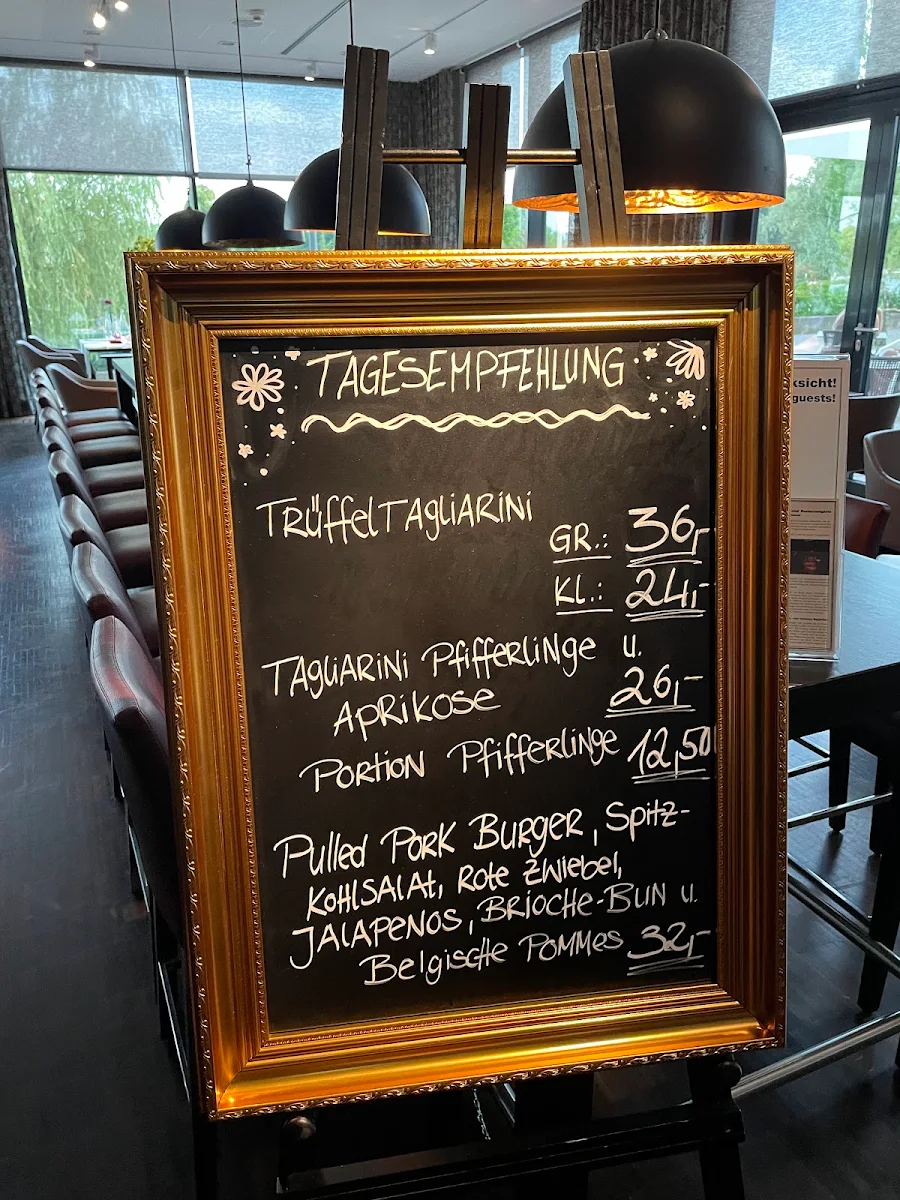 TAGESEMPFEHLUNG
TRÜffelTAgliARiNi
GR.: 36,-
Kl.: 24,-
TAgliARiNi PfifferliNge u.
APRikose 26,-
PORTioN Pfifferlinge 12,50
Pulled PORK BURGER, Spitz-
KohlSAlAt, Rote Zwiebel,
JAlAPENOS, BRiOCHE-BUN u.
Belgische POMMes 32,-
ksicht!
guests!